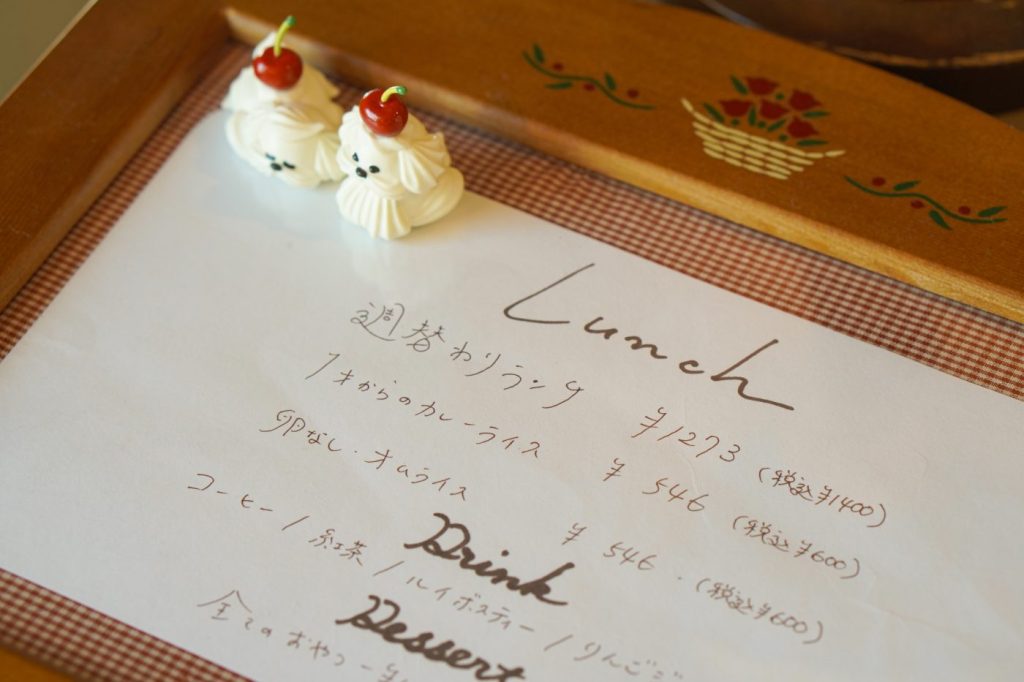 Lunch
週替わりランチ ¥1273 (税込¥1400)
1才からのカレーライス ¥546 (税込¥600)
卵なし・オムライス ¥546 (税込¥600)
Drink
コーヒー / 紅茶 / ルイボスティー / りんごジ
Dessert
全てのおやつ ー ¥